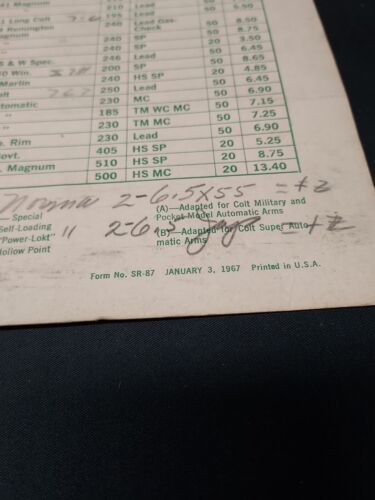 41 Magnum 210 Lead 50
1 Long Colt 195 Lead 50 5.50
Remington Magnum 240 Lead Gas-Check 50 8.50
" 240 SP 50 8.75
" 240 SP 20 3.50
246 Lead 50 6.45
& W Spec. 200 SP 50 8.65
Win. 240 HS SP 20 4.85
250 Lead 50 6.45
utomatic 230 MC 50 6.90
" 185 TM WC MC 50 7.15
" 230 TM MC 50 7.25
. Rim 230 Lead 50 6.90
ovt. 405 HS SP 20 5.25
. Magnum 510 HS SP 20 8.75
500 HS MC 20 13.40
Norma 2-6.5x55 =+z
—Special (A)—Adapted for Colt Military and
Self-Loading Pocket Model Automatic Arms
"Power-Lokt" " 2-6.5 Jap =+z
(B)—Adapted for Colt Super Auto-
Hollow Point matic Arms
Form No. SR-87 JANUARY 3, 1967 Printed in U.S.A.